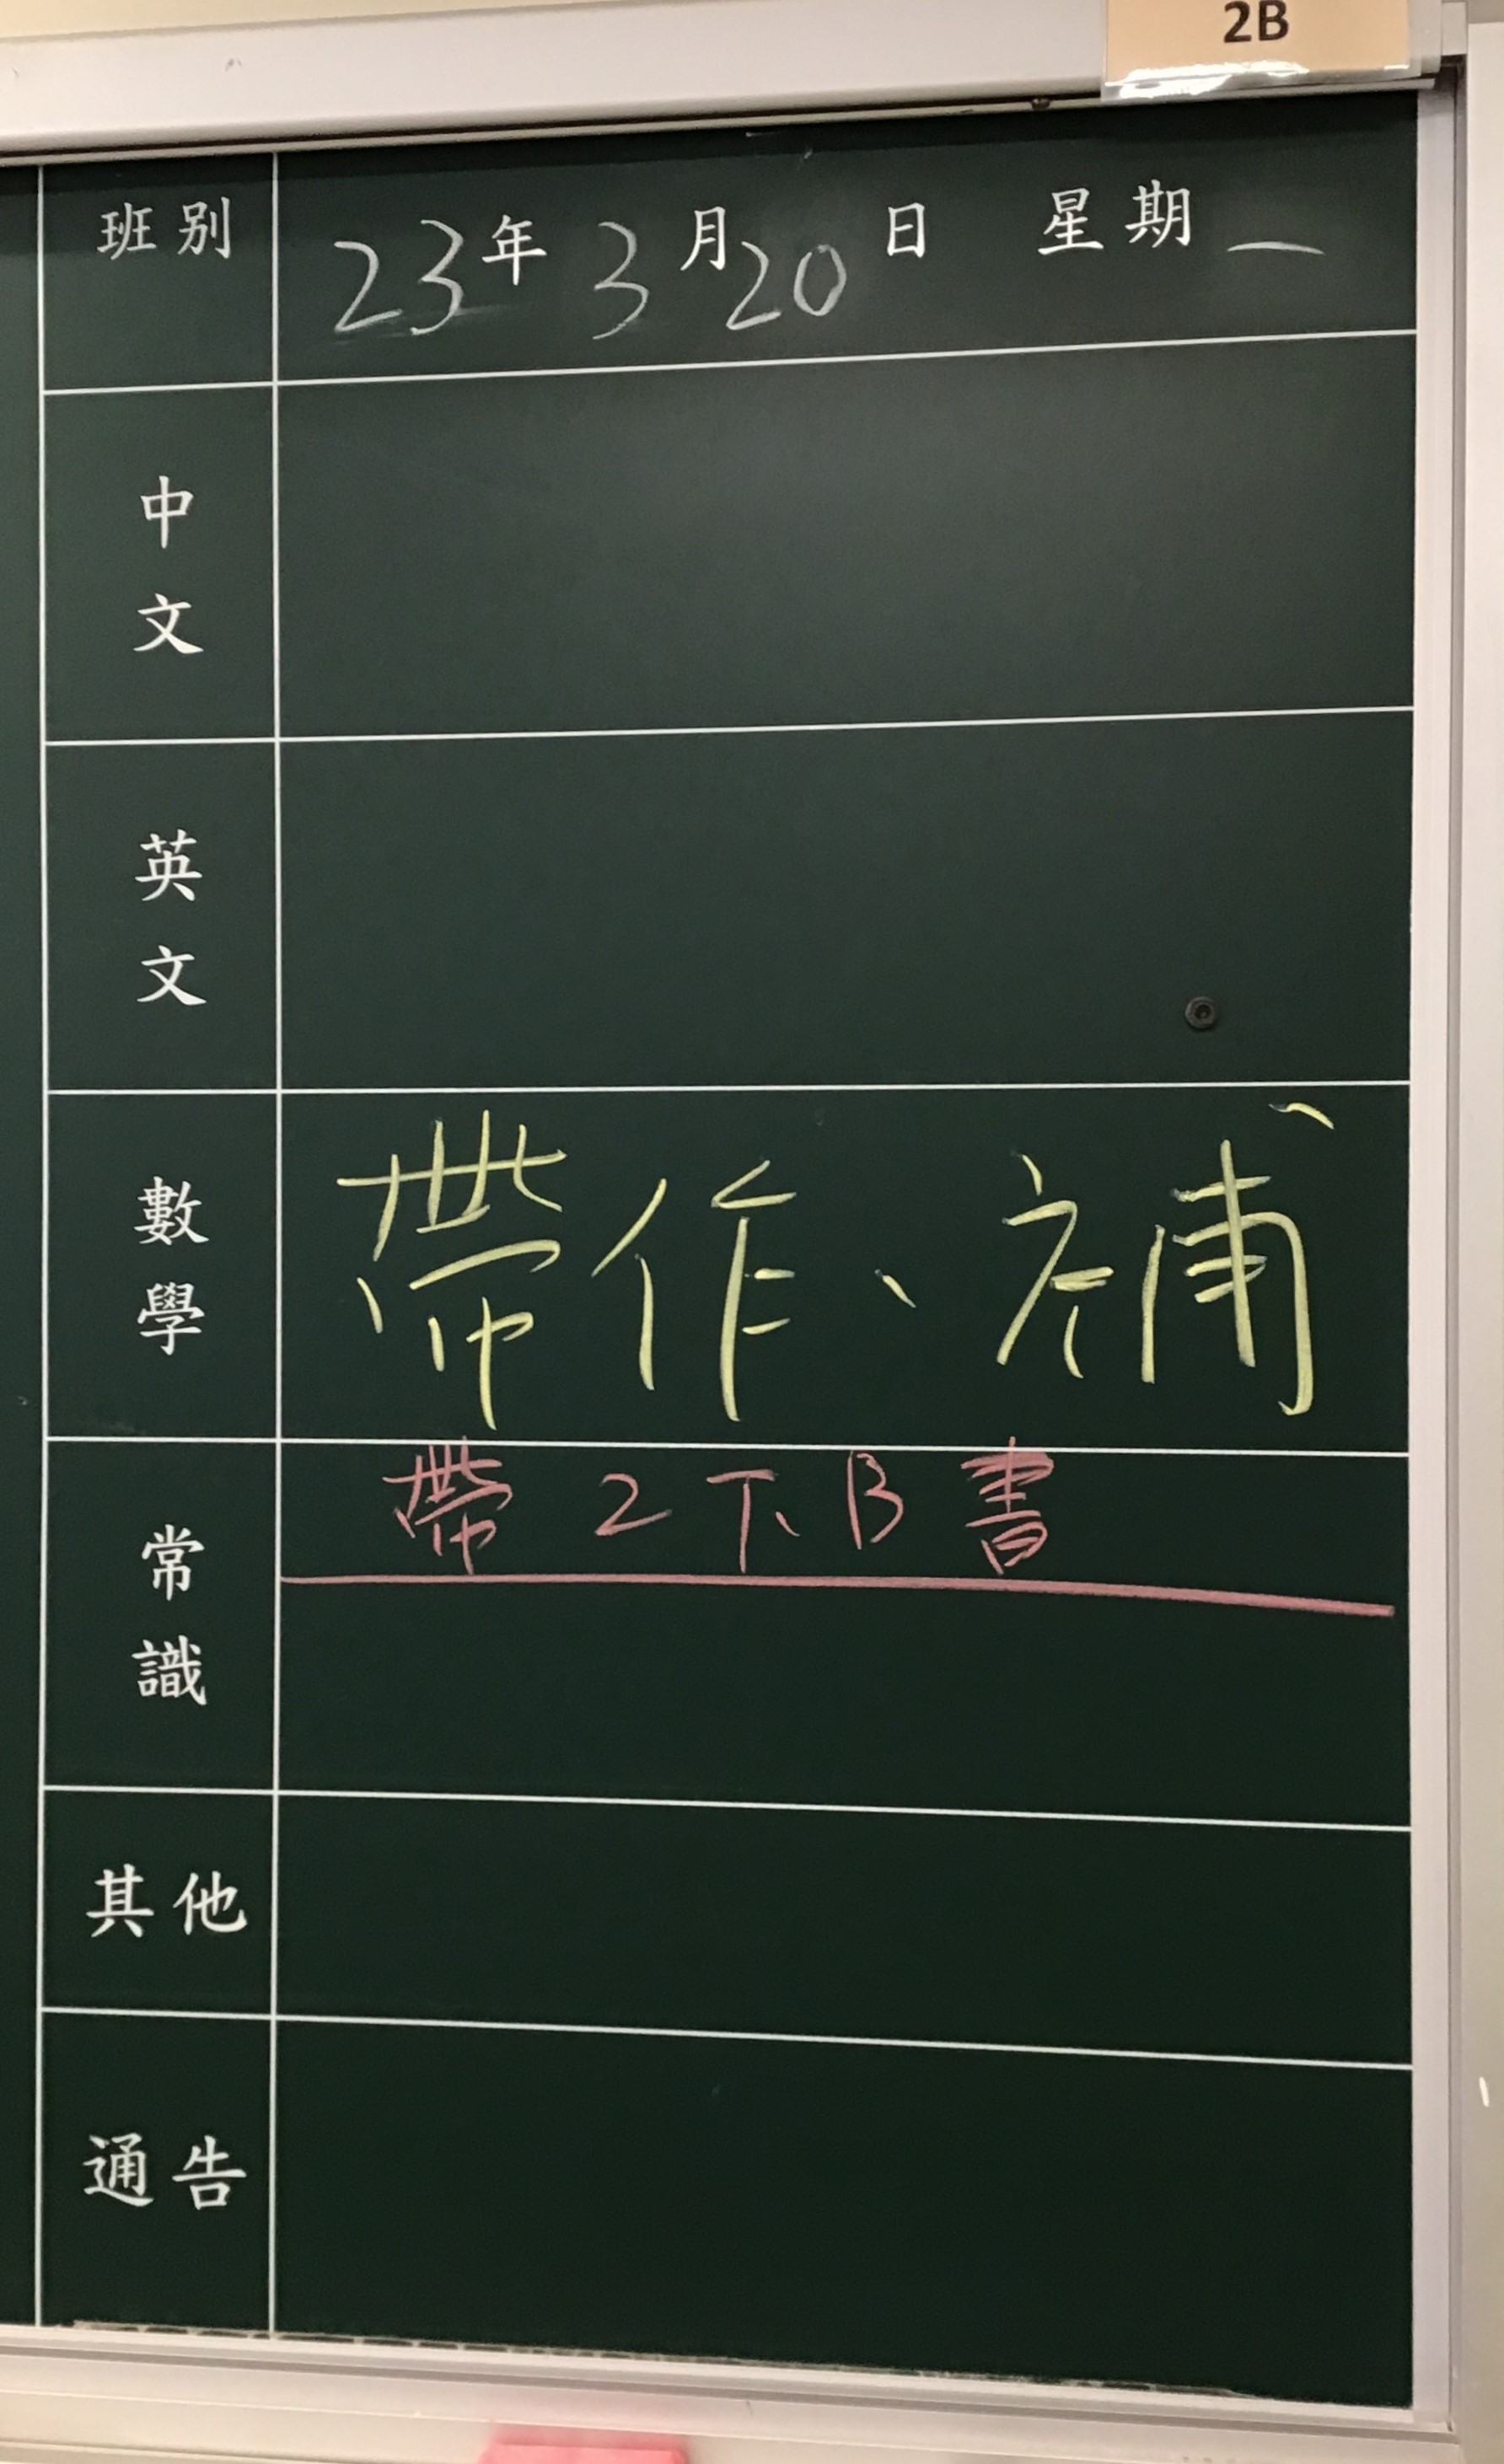 2B
班別 23年3月20日 星期一
中文
英文
數學 帶作、補
常識 帶2下B書
其他
通告